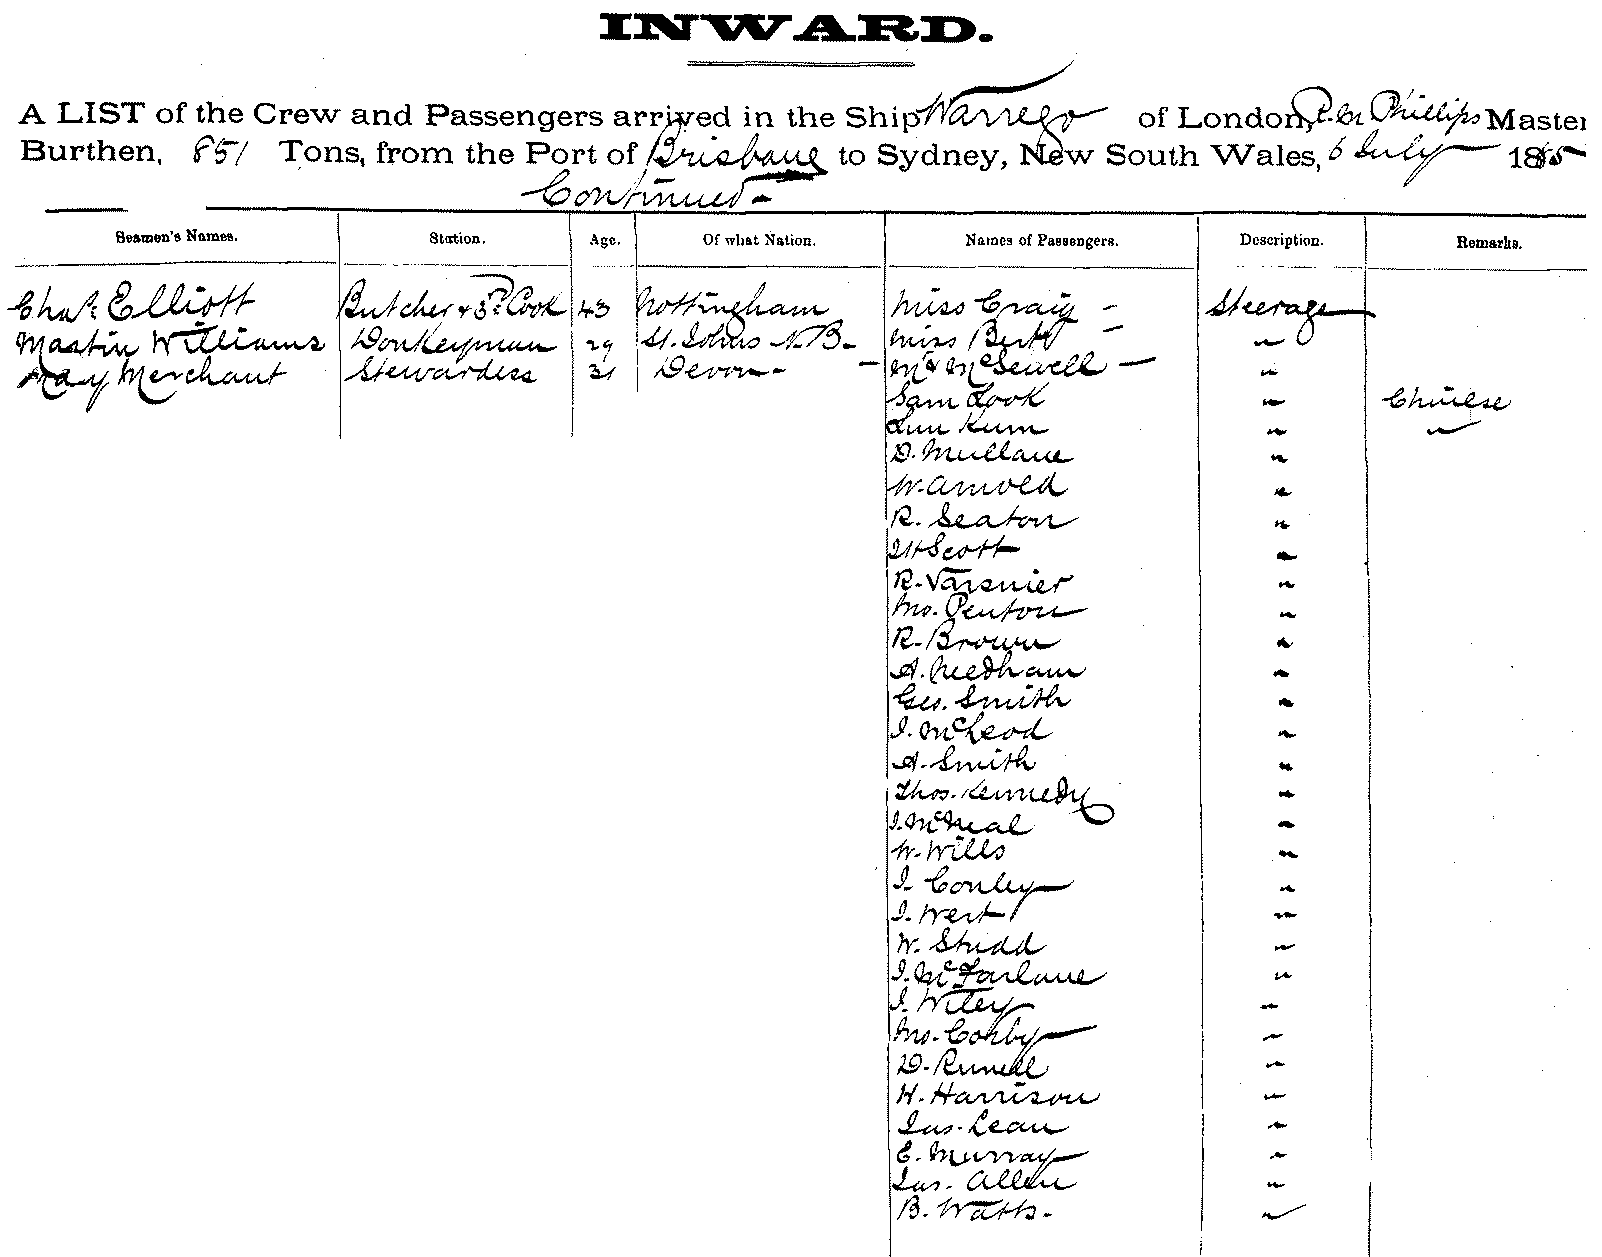 INWARD.
A LIST of the Crew and Passengers arrived in the Ship Warrego of London, Phillips Master
Burthen, 851 Tons, from the Port of Brisbane to Sydney, New South Wales, 6 July 1885
Continued -
Seamen's Names. Station. Age. Of what Nation. Names of Passengers. Description. Remarks.
Chas. Elliott Butcher & 3rd Cook 43 Nottingham Miss Craig - Steerage
Martin Williams Donkeyman 29 St. Johns N.B. Miss "
May Merchant Stewardess 31 Devon - "
Sam Look " Chinese
Lun Kum " "
D. Mullane "
W. Arnold "
R. Seaton "
Scott "
R. Varsnier "
Jno. Penton "
R. Brown "
A. Needham "
Geo. Smith "
J. McLeod "
A. Smith "
Thos. Kennedy "
J. McNeal "
W. Wills "
J. Conley "
J. West "
W. Studd "
J. McFarlane "
J. Wiley "
Jno. Corby "
D. "
H. Harrison "
Jas. Lean "
E. Murray "
Jas. Allen "
B. Watts. "